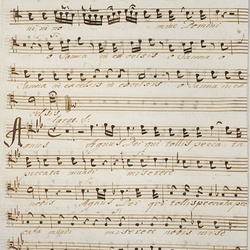 ni ni no mine Domini
o Sanna in excelsis o Sanna o
Sanna in excelsis in excelsis o Sanna in ex
celsis
Largo
Agnus Agnus Dei qui tollis peccata
peccata mundi miserere
nobis Agnus Dei qui tollis peccata pec
cata mundi miserere nobis mise